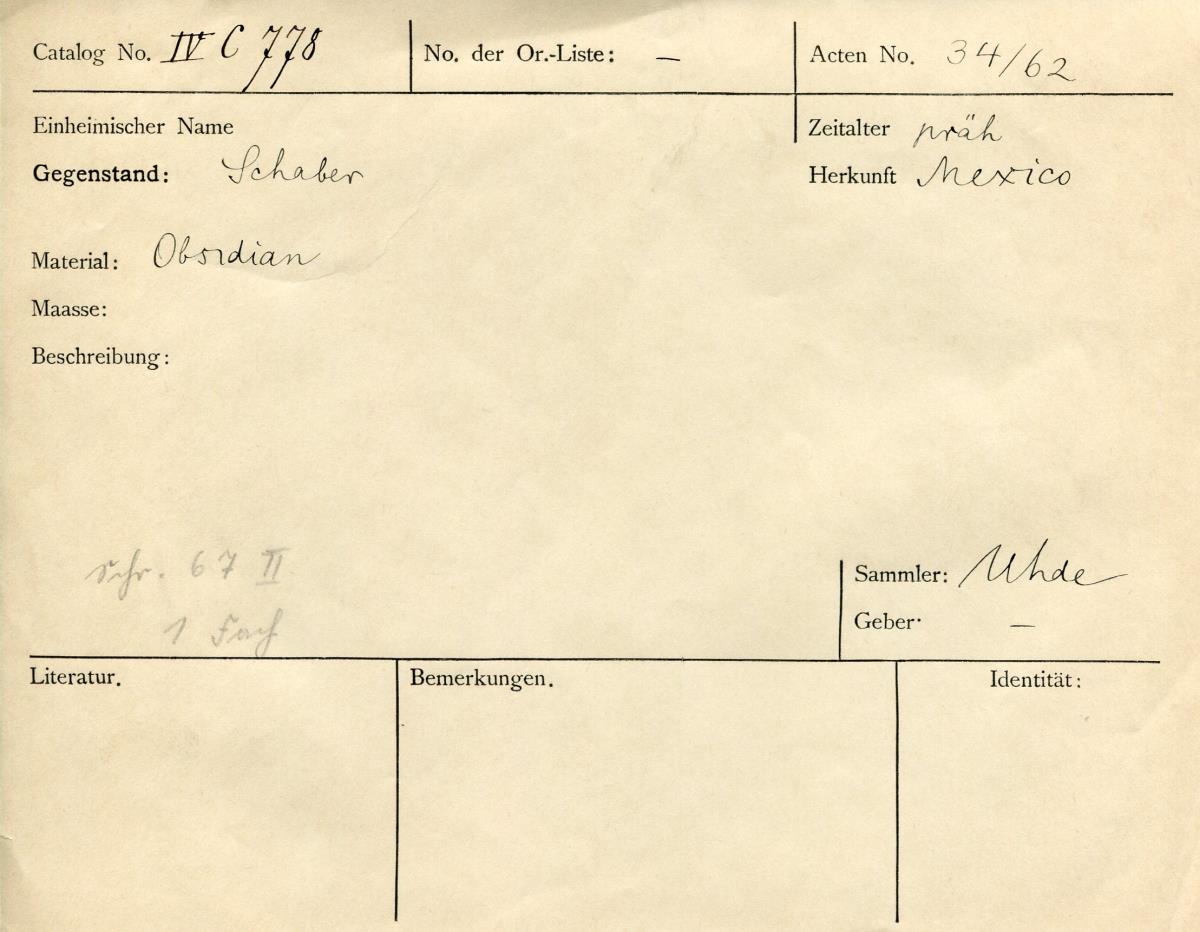 Catalog No. IV C 778 No. der Or.-Liste: — Acten No. 34/62
Einheimischer Name Zeitalter präh
Gegenstand: Schaber Herkunft Mexico
Material: Obsidian
Maasse:
Beschreibung:
Schr. 67 II
Sammler: Uhde
1 Fach
Geber. —
Literatur. Bemerkungen. Identität: